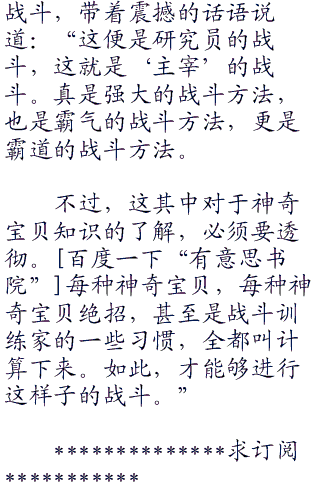 战斗，带着震撼的话语说
道：“这便是研究员的战
斗，这就是‘主宰’的战
斗。真是强大的战斗方法，
也是霸气的战斗方法，更是
霸道的战斗方法。
不过，这其中对于神奇
宝贝知识的了解，必须要透
彻。[百度一下“有意思书
院”]每种神奇宝贝，每种神
奇宝贝绝招，甚至是战斗训
练家的一些习惯，全都叫计
算下来。如此，才能够进行
这样子的战斗。”
**************求订阅
***********